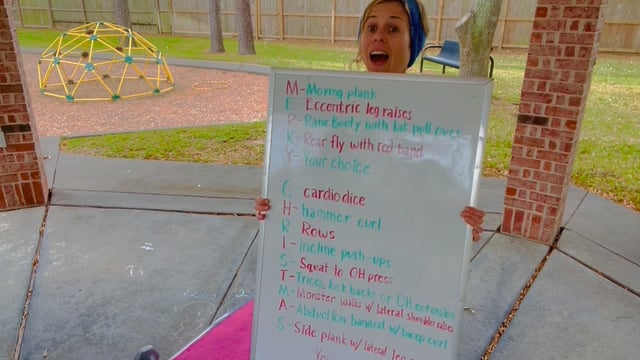 M-Moving plank
E-Eccentric leg raises
R-Rane Booty with lat pull over
R-Rear fly with red band
Y-Your choice
C cardio dice
H-hammer curl
R Rows
I-incline push-ups
S-Squat to OH press
T-Tricep kickbacks or OH extension
M-Monster walks w/ lateral shoulder raises
A-Abduction banded w/ bicep curl
S-Side plank w/ lateral leg